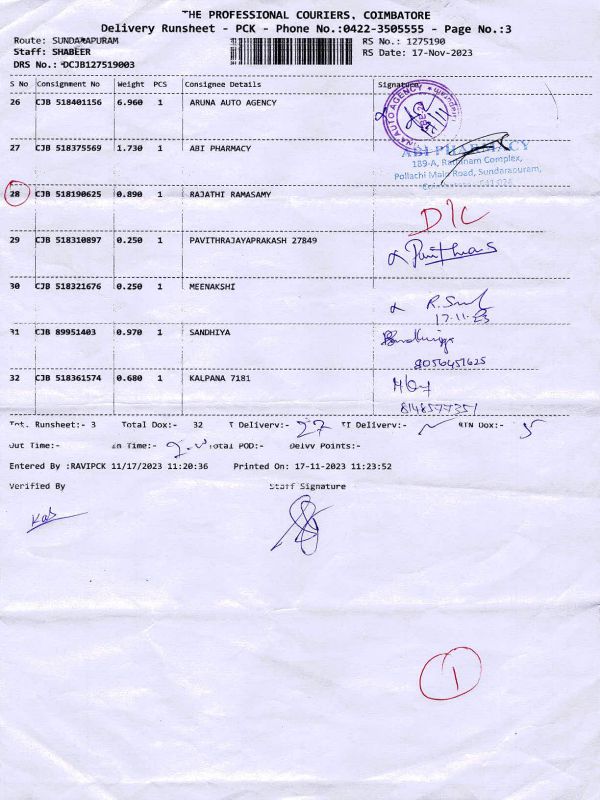 THE PROFESSIONAL COURIERS, COIMBATORE
Delivery Runsheet - PCK - Phone No.:0422-3505555 - Page No.:3
Route: SUNDARAPURAM RS No.: 1275190
Staff: SHABEER RS Date: 17-Nov-2023
DRS No.: DCJB127519003
S No Consignment No Weight PCS Consignee Details Signature
26 CJB 518401156 6.960 1 ARUNA AUTO AGENCY
AUTO AGENCY
27 CJB 518375569 1.730 1 ABI PHARMACY
ABI PHARMACY
189-A, Complex,
Pollachi Main Road, Sundarapuram,
28 CJB 518190625 0.890 1 RAJATHI RAMASAMY
D/C
29 CJB 518310897 0.250 1 PAVITHRAJAYAPRAKASH 27849
30 CJB 518321676 0.250 1 MEENAKSHI
17-11-23
31 CJB 89951403 0.970 1 SANDHIYA
8056451625
32 CJB 518361574 0.680 1 KALPANA 7181
8148577351
Tot. Runsheet:- 3 Total Dox:- 32 I Delivery:- 27 II Delivery:- RTN Dox:- 5
Out Time:- In Time:- Total POD:- Delvy Points:-
Entered By :RAVIPCK 11/17/2023 11:20:36 Printed On: 17-11-2023 11:23:52
Verified By Staff Signature
1